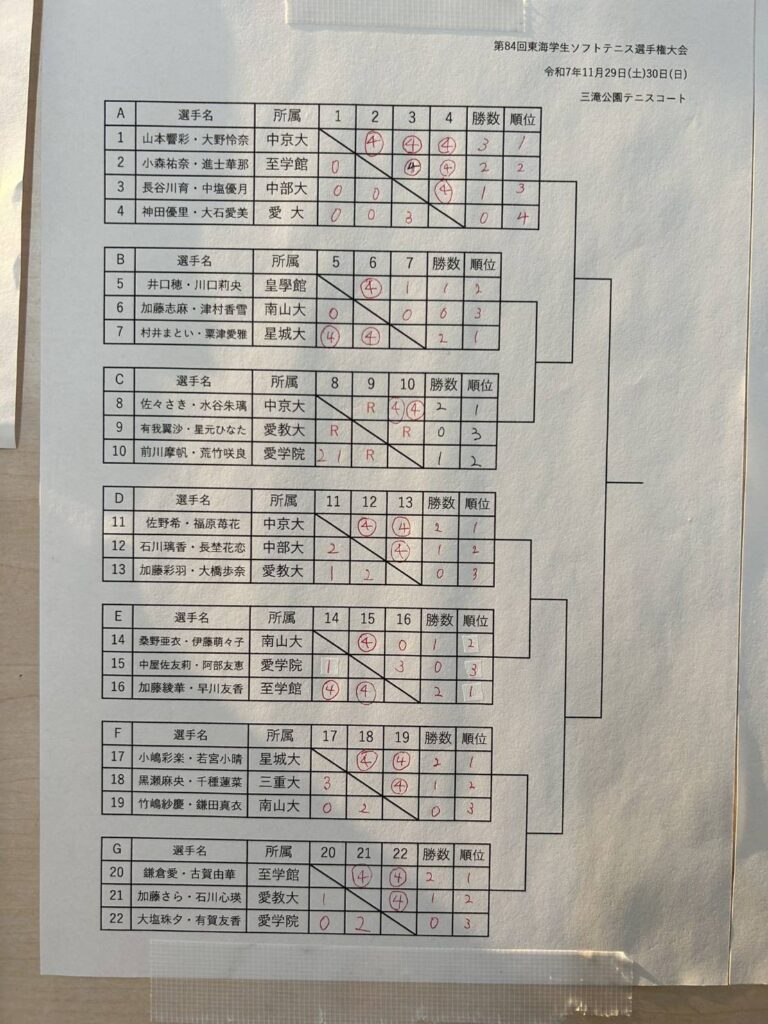 第84回東海学生ソフトテニス選手権大会
令和7年11月29日(土)30日(日)
三滝公園テニスコート
A 選手名 所属 1 2 3 4 勝数 順位
1 山本響彩・大野怜奈 中京大 ④ ④ ④ 3 1
2 小森祐奈・進士華那 至学館 0 ④ ④ 2 2
3 長谷川育・中塩優月 中部大 0 0 ④ 1 3
4 神田優里・大石愛美 愛 大 0 0 3 0 4
B 選手名 所属 5 6 7 勝数 順位
5 井口穂・川口莉央 皇學館 ④ 1 1 2
6 加藤志麻・津村香雪 南山大 0 0 0 3
7 村井まとい・粟津愛雅 星城大 ④ ④ 2 1
C 選手名 所属 8 9 10 勝数 順位
8 佐々さき・水谷朱璃 中京大 R ④ ④ 2 1
9 有我翼沙・星元ひなた 愛教大 R R 0 3
10 前川摩帆・荒竹咲良 愛学院 2 1 R 1 2
D 選手名 所属 11 12 13 勝数 順位
11 佐野希・福原苺花 中京大 ④ ④ 2 1
12 石川璃香・長埜花恋 中部大 2 ④ 1 2
13 加藤彩羽・大橋歩奈 愛教大 1 2 0 3
E 選手名 所属 14 15 16 勝数 順位
14 桑野亜衣・伊藤萌々子 南山大 ④ 0 1 2
15 中屋佐友莉・阿部友恵 愛学院 1 3 0 3
16 加藤綾華・早川友香 至学館 ④ ④ 2 1
F 選手名 所属 17 18 19 勝数 順位
17 小嶋彩楽・若宮小晴 星城大 ④ ④ 2 1
18 黒瀬麻央・千種蓮菜 三重大 3 ④ 1 2
19 竹嶋紗慶・鎌田真衣 南山大 0 2 0 3
G 選手名 所属 20 21 22 勝数 順位
20 鎌倉愛・古賀由華 至学館 ④ ④ 2 1
21 加藤さら・石川心瑛 愛教大 1 ④ 1 2
22 大塩珠夕・有賀友香 愛学院 0 2 0 3